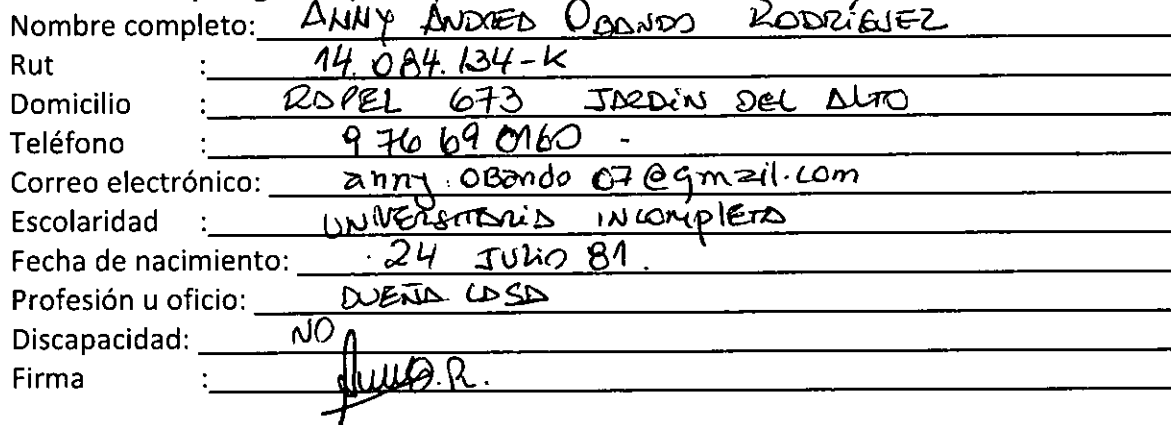 Nombre completo: ANNY ANDREA OBANDO RODRÍGUEZ
Rut : 14.084.134-K
Domicilio : RAPEL 673 JARDIN DEL ALTO
Teléfono : 9 76 69 0160 -
Correo electrónico: anny.obando07@gmail.com
Escolaridad : UNIVERSITARIA INCOMPLETA
Fecha de nacimiento: 24 JULIO 81.
Profesión u oficio: DUEÑA CASA
Discapacidad: NO
Firma :